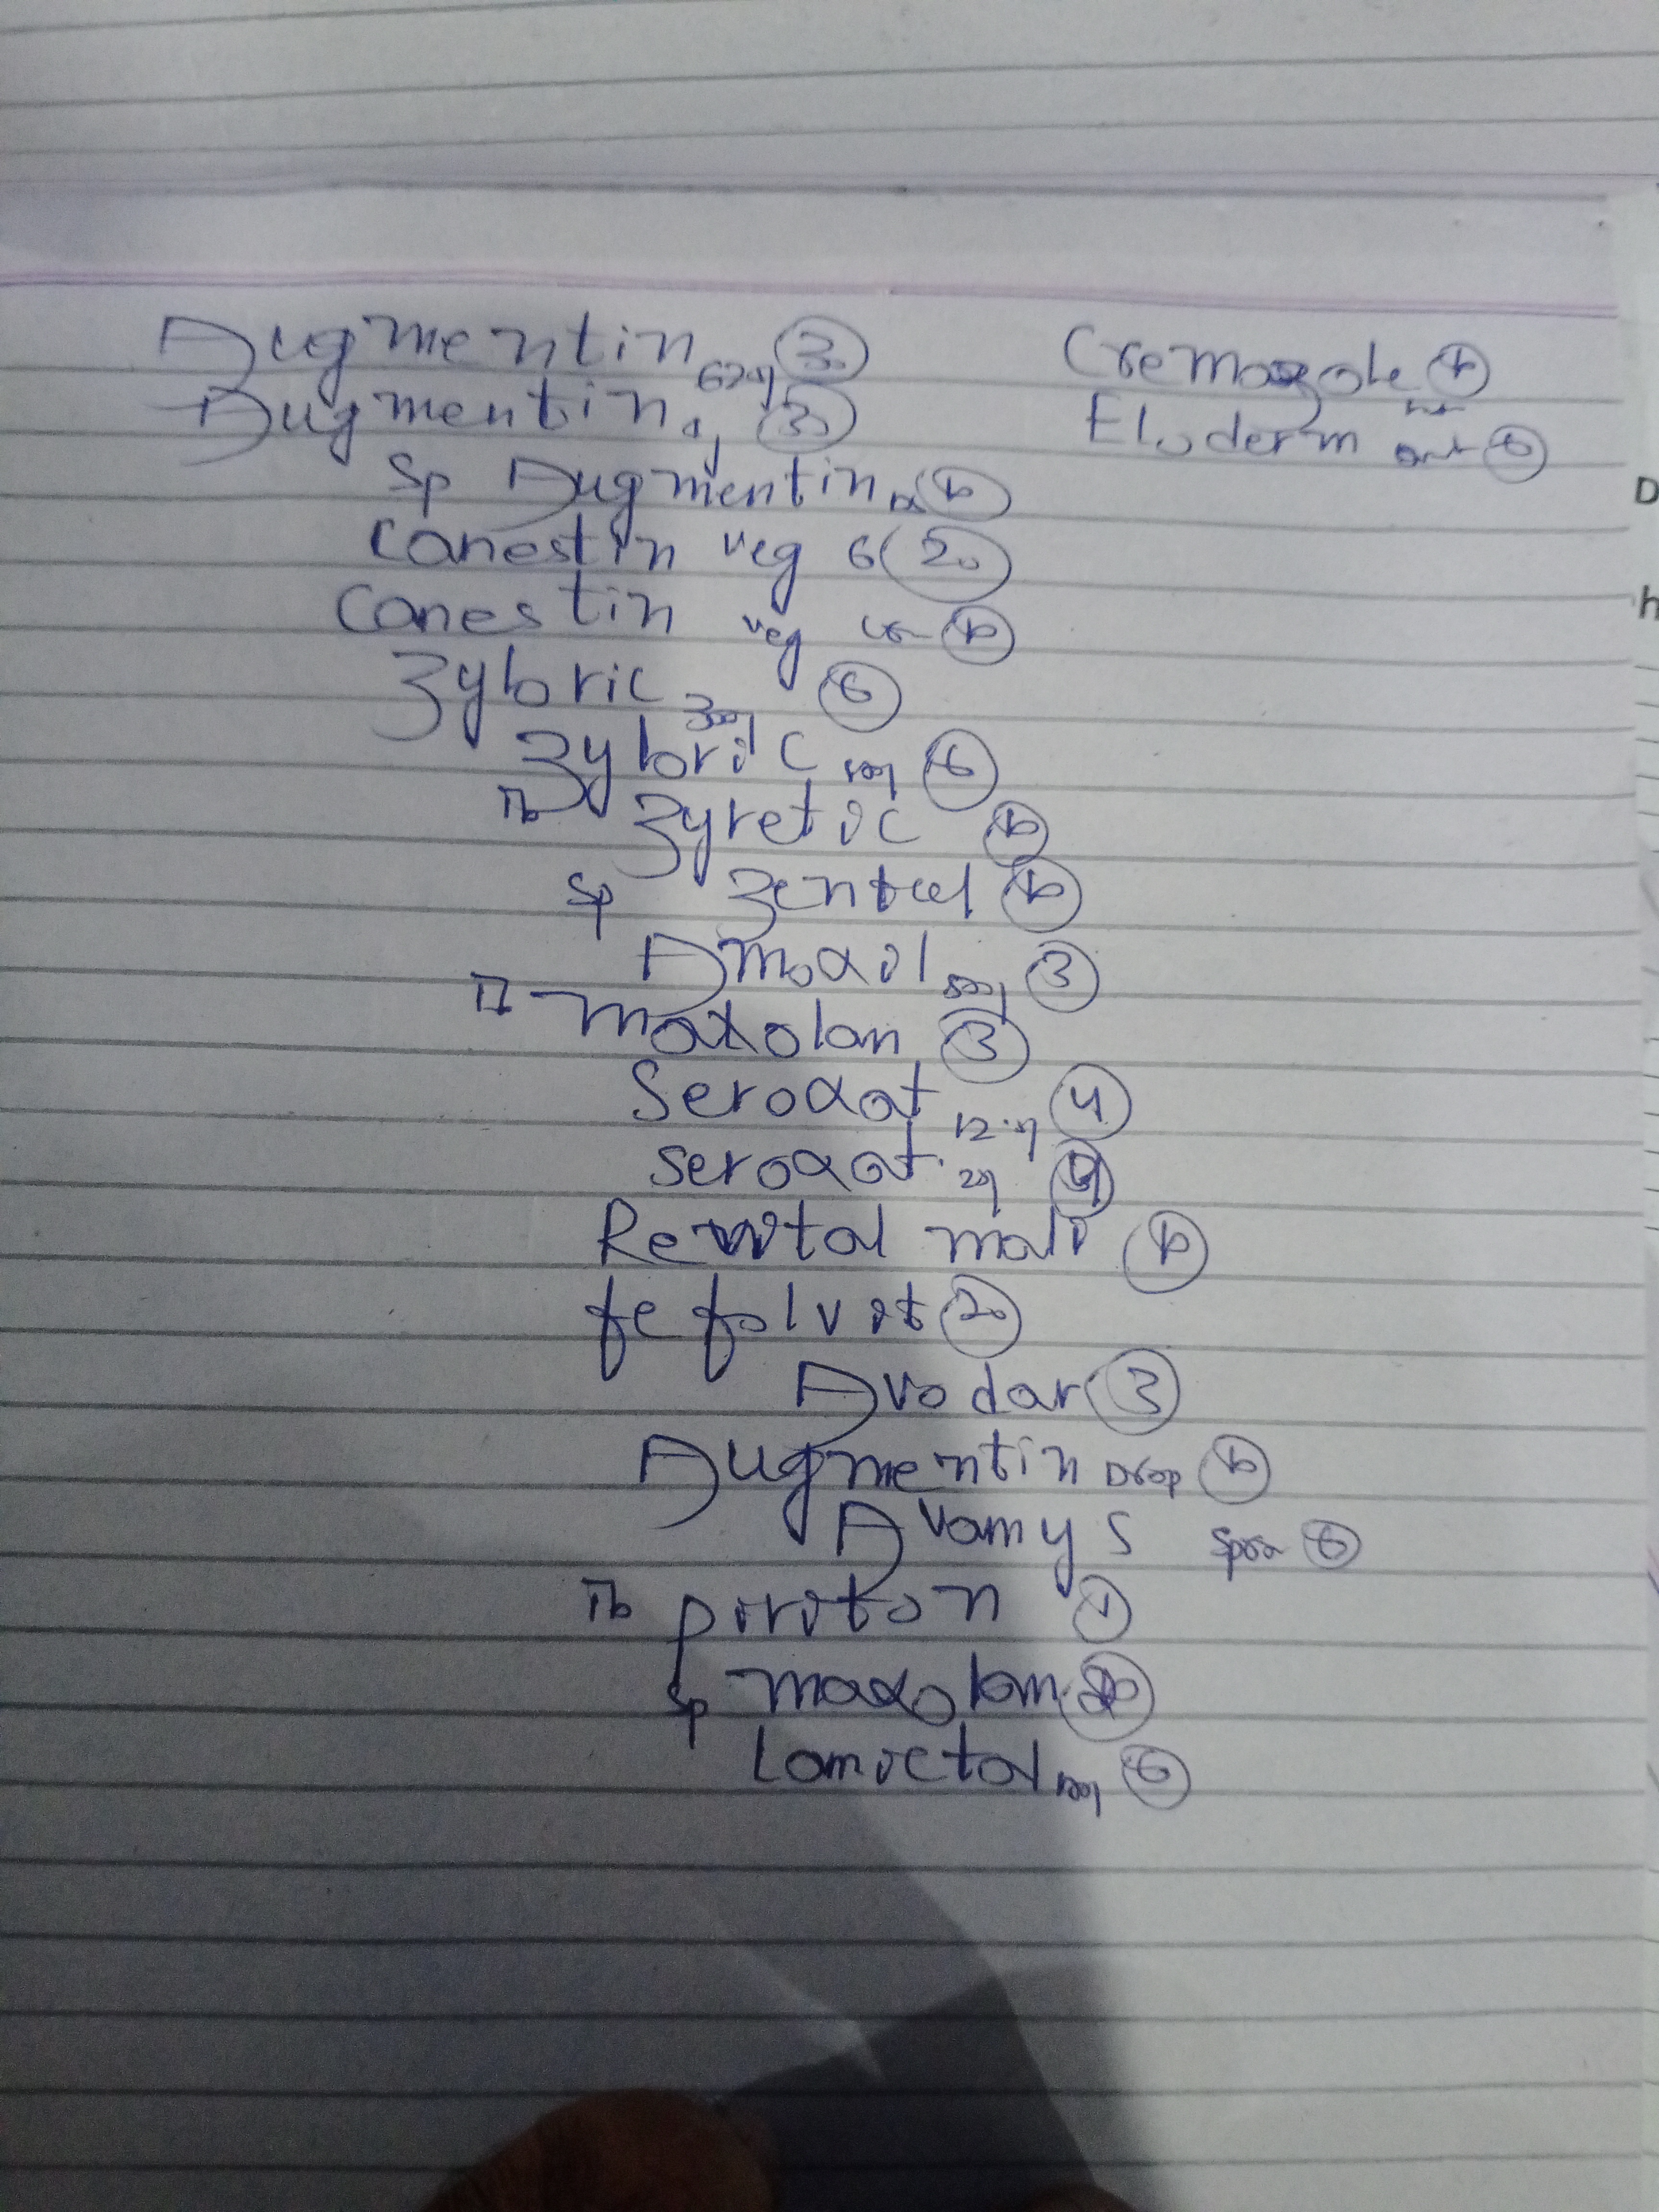 Augmentin 625g 30
Augmentin 1g 30
Sp Augmentin DS 10
Canestin veg 6 20
Canestin veg 10
Zyloric 300g 6
Zyloric 100g 6
Tb Zyretic 10
Sp Zentel 10
Amoxil 500g 3
Maxolon 3
Seroxat 12.5g 4
Seroxat 20g 4
Revital multi 10
fefolvit 20
Avodar 3
Augmentin Drop 10
Avamys Spra 6
Tb piriton 1
Sp maxolon
Lamictal 100g 6
Cremazole
Eloderm oint 6
D
h